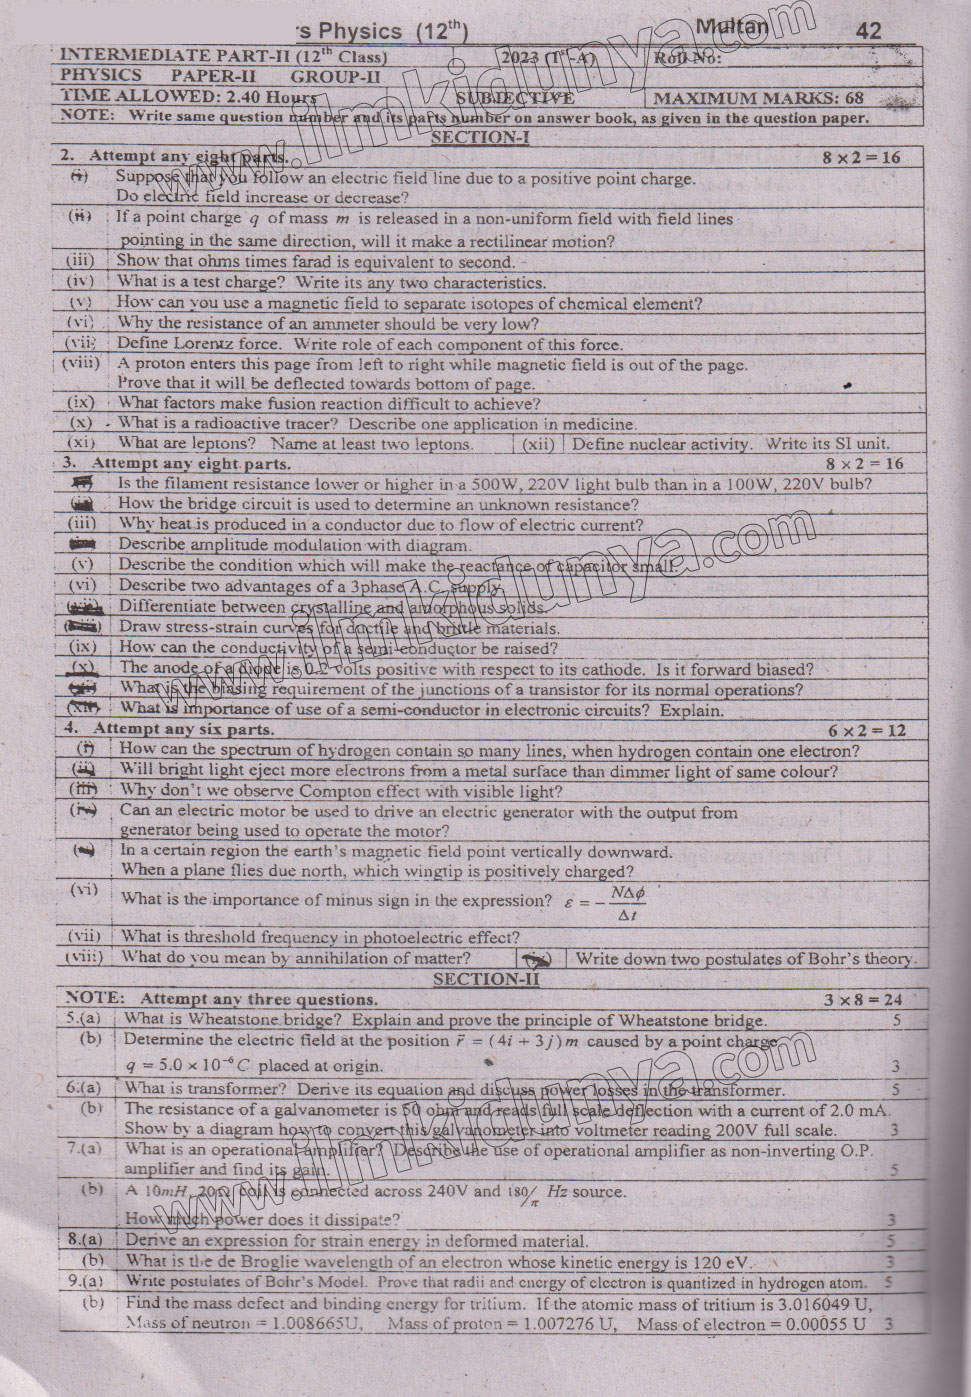 's Physics (12th) Multan 42
INTERMEDIATE PART-II (12th Class) 2023 (1st-A) Roll No:
PHYSICS PAPER-II GROUP-II
TIME ALLOWED: 2.40 Hours SUBJECTIVE MAXIMUM MARKS: 68
NOTE: Write same question number and its parts number on answer book, as given in the question paper.
SECTION-I
2. Attempt any eight parts. 8 × 2 = 16
(i) Suppose that you follow an electric field line due to a positive point charge.
Do electric field increase or decrease?
(ii) If a point charge q of mass m is released in a non-uniform field with field lines
pointing in the same direction, will it make a rectilinear motion?
(iii) Show that ohms times farad is equivalent to second.
(iv) What is a test charge? Write its any two characteristics.
(v) How can you use a magnetic field to separate isotopes of chemical element?
(vi) Why the resistance of an ammeter should be very low?
(vii) Define Lorentz force. Write role of each component of this force.
(viii) A proton enters this page from left to right while magnetic field is out of the page.
Prove that it will be deflected towards bottom of page.
(ix) What factors make fusion reaction difficult to achieve?
(x) What is a radioactive tracer? Describe one application in medicine.
(xi) What are leptons? Name at least two leptons. (xii) Define nuclear activity. Write its SI unit.
3. Attempt any eight parts. 8 × 2 = 16
Is the filament resistance lower or higher in a 500W, 220V light bulb than in a 100W, 220V bulb?
How the bridge circuit is used to determine an unknown resistance?
(iii) Why heat is produced in a conductor due to flow of electric current?
Describe amplitude modulation with diagram.
(v) Describe the condition which will make the reactance of capacitor small.
(vi) Describe two advantages of a 3phase A.C. supply.
Differentiate between crystalline and amorphous solids.
Draw stress-strain curves for ductile and brittle materials.
(ix) How can the conductivity of a semi-conductor be raised?
(x) The anode of a diode is 0.2 volts positive with respect to its cathode. Is it forward biased?
What is the biasing requirement of the junctions of a transistor for its normal operations?
(xii) What is importance of use of a semi-conductor in electronic circuits? Explain.
4. Attempt any six parts. 6 × 2 = 12
(i) How can the spectrum of hydrogen contain so many lines, when hydrogen contain one electron?
(ii) Will bright light eject more electrons from a metal surface than dimmer light of same colour?
(iii) Why don't we observe Compton effect with visible light?
(iv) Can an electric motor be used to drive an electric generator with the output from
generator being used to operate the motor?
In a certain region the earth's magnetic field point vertically downward.
When a plane flies due north, which wingtip is positively charged?
(vi) What is the importance of minus sign in the expression? ε = − NΔϕ / Δt
(vii) What is threshold frequency in photoelectric effect?
(viii) What do you mean by annihilation of matter? (ix) Write down two postulates of Bohr's theory.
SECTION-II
NOTE: Attempt any three questions. 3 × 8 = 24
5.(a) What is Wheatstone bridge? Explain and prove the principle of Wheatstone bridge. 5
(b) Determine the electric field at the position r⃗ = (4i + 3j) m caused by a point charge
q = 5.0 × 10⁻⁶ C placed at origin. 3
6.(a) What is transformer? Derive its equation and discuss power losses in the transformer. 5
(b) The resistance of a galvanometer is 50 ohm and reads full scale deflection with a current of 2.0 mA.
Show by a diagram how to convert this galvanometer into voltmeter reading 200V full scale. 3
7.(a) What is an operational amplifier? Describe the use of operational amplifier as non-inverting O.P.
amplifier and find its gain. 5
(b) A 10mH, 20Ω coil is connected across 240V and 180/π Hz source.
How much power does it dissipate? 3
8.(a) Derive an expression for strain energy in deformed material. 5
(b) What is the de Broglie wavelength of an electron whose kinetic energy is 120 eV. 3
9.(a) Write postulates of Bohr's Model. Prove that radii and energy of electron is quantized in hydrogen atom. 5
(b) Find the mass defect and binding energy for tritium. If the atomic mass of tritium is 3.016049 U,
Mass of neutron = 1.008665U, Mass of proton = 1.007276 U, Mass of electron = 0.00055 U 3
www.ilmkidunya.com
www.ilmkidunya.com
www.ilmkidunya.com